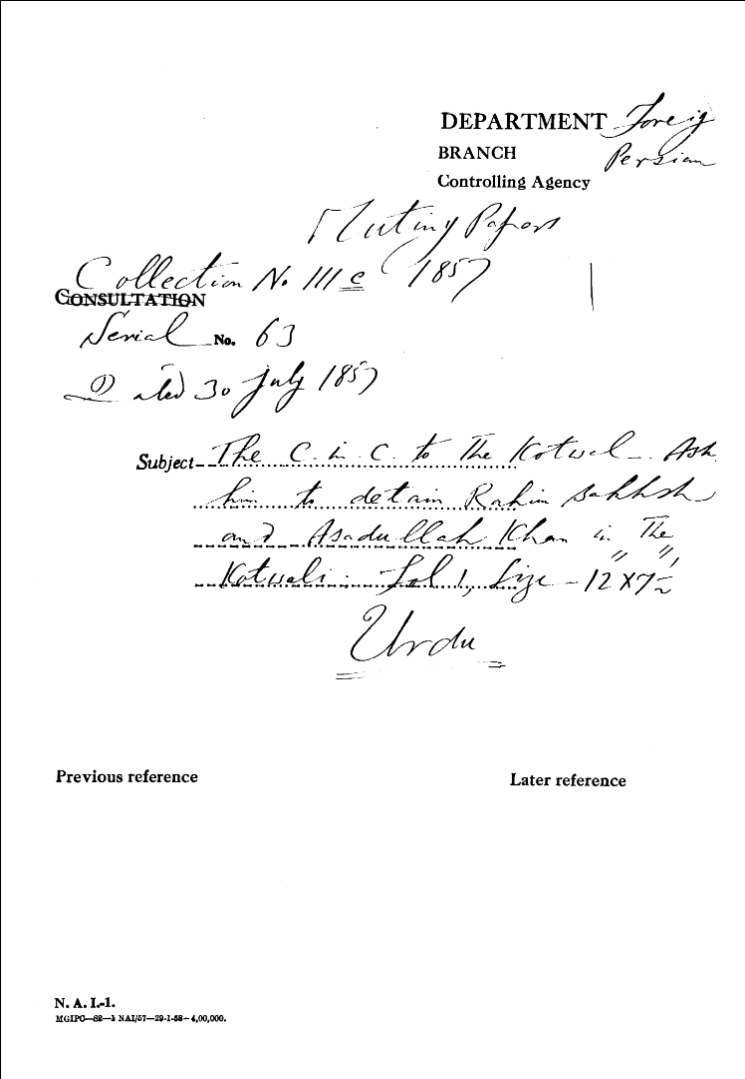 DEPARTMENT Foreig
BRANCH Persian
Controlling Agency
Mutiny Papers
Collection No. III c 1857
CONSULTATION
Serial No. 63
Dated 30 July 1857
Subject The C. in C. to the Kotwal - Ask
him to detain Rahim Bakhsh
and Asadullah Khan in the
Kotwali. Fol 1, Size - 12" X 7 1/2"
Urdu
Previous reference Later reference
N. A. I.-1.
MGIPC—S2—1 NAI/57—29-1-58—4,00,000.